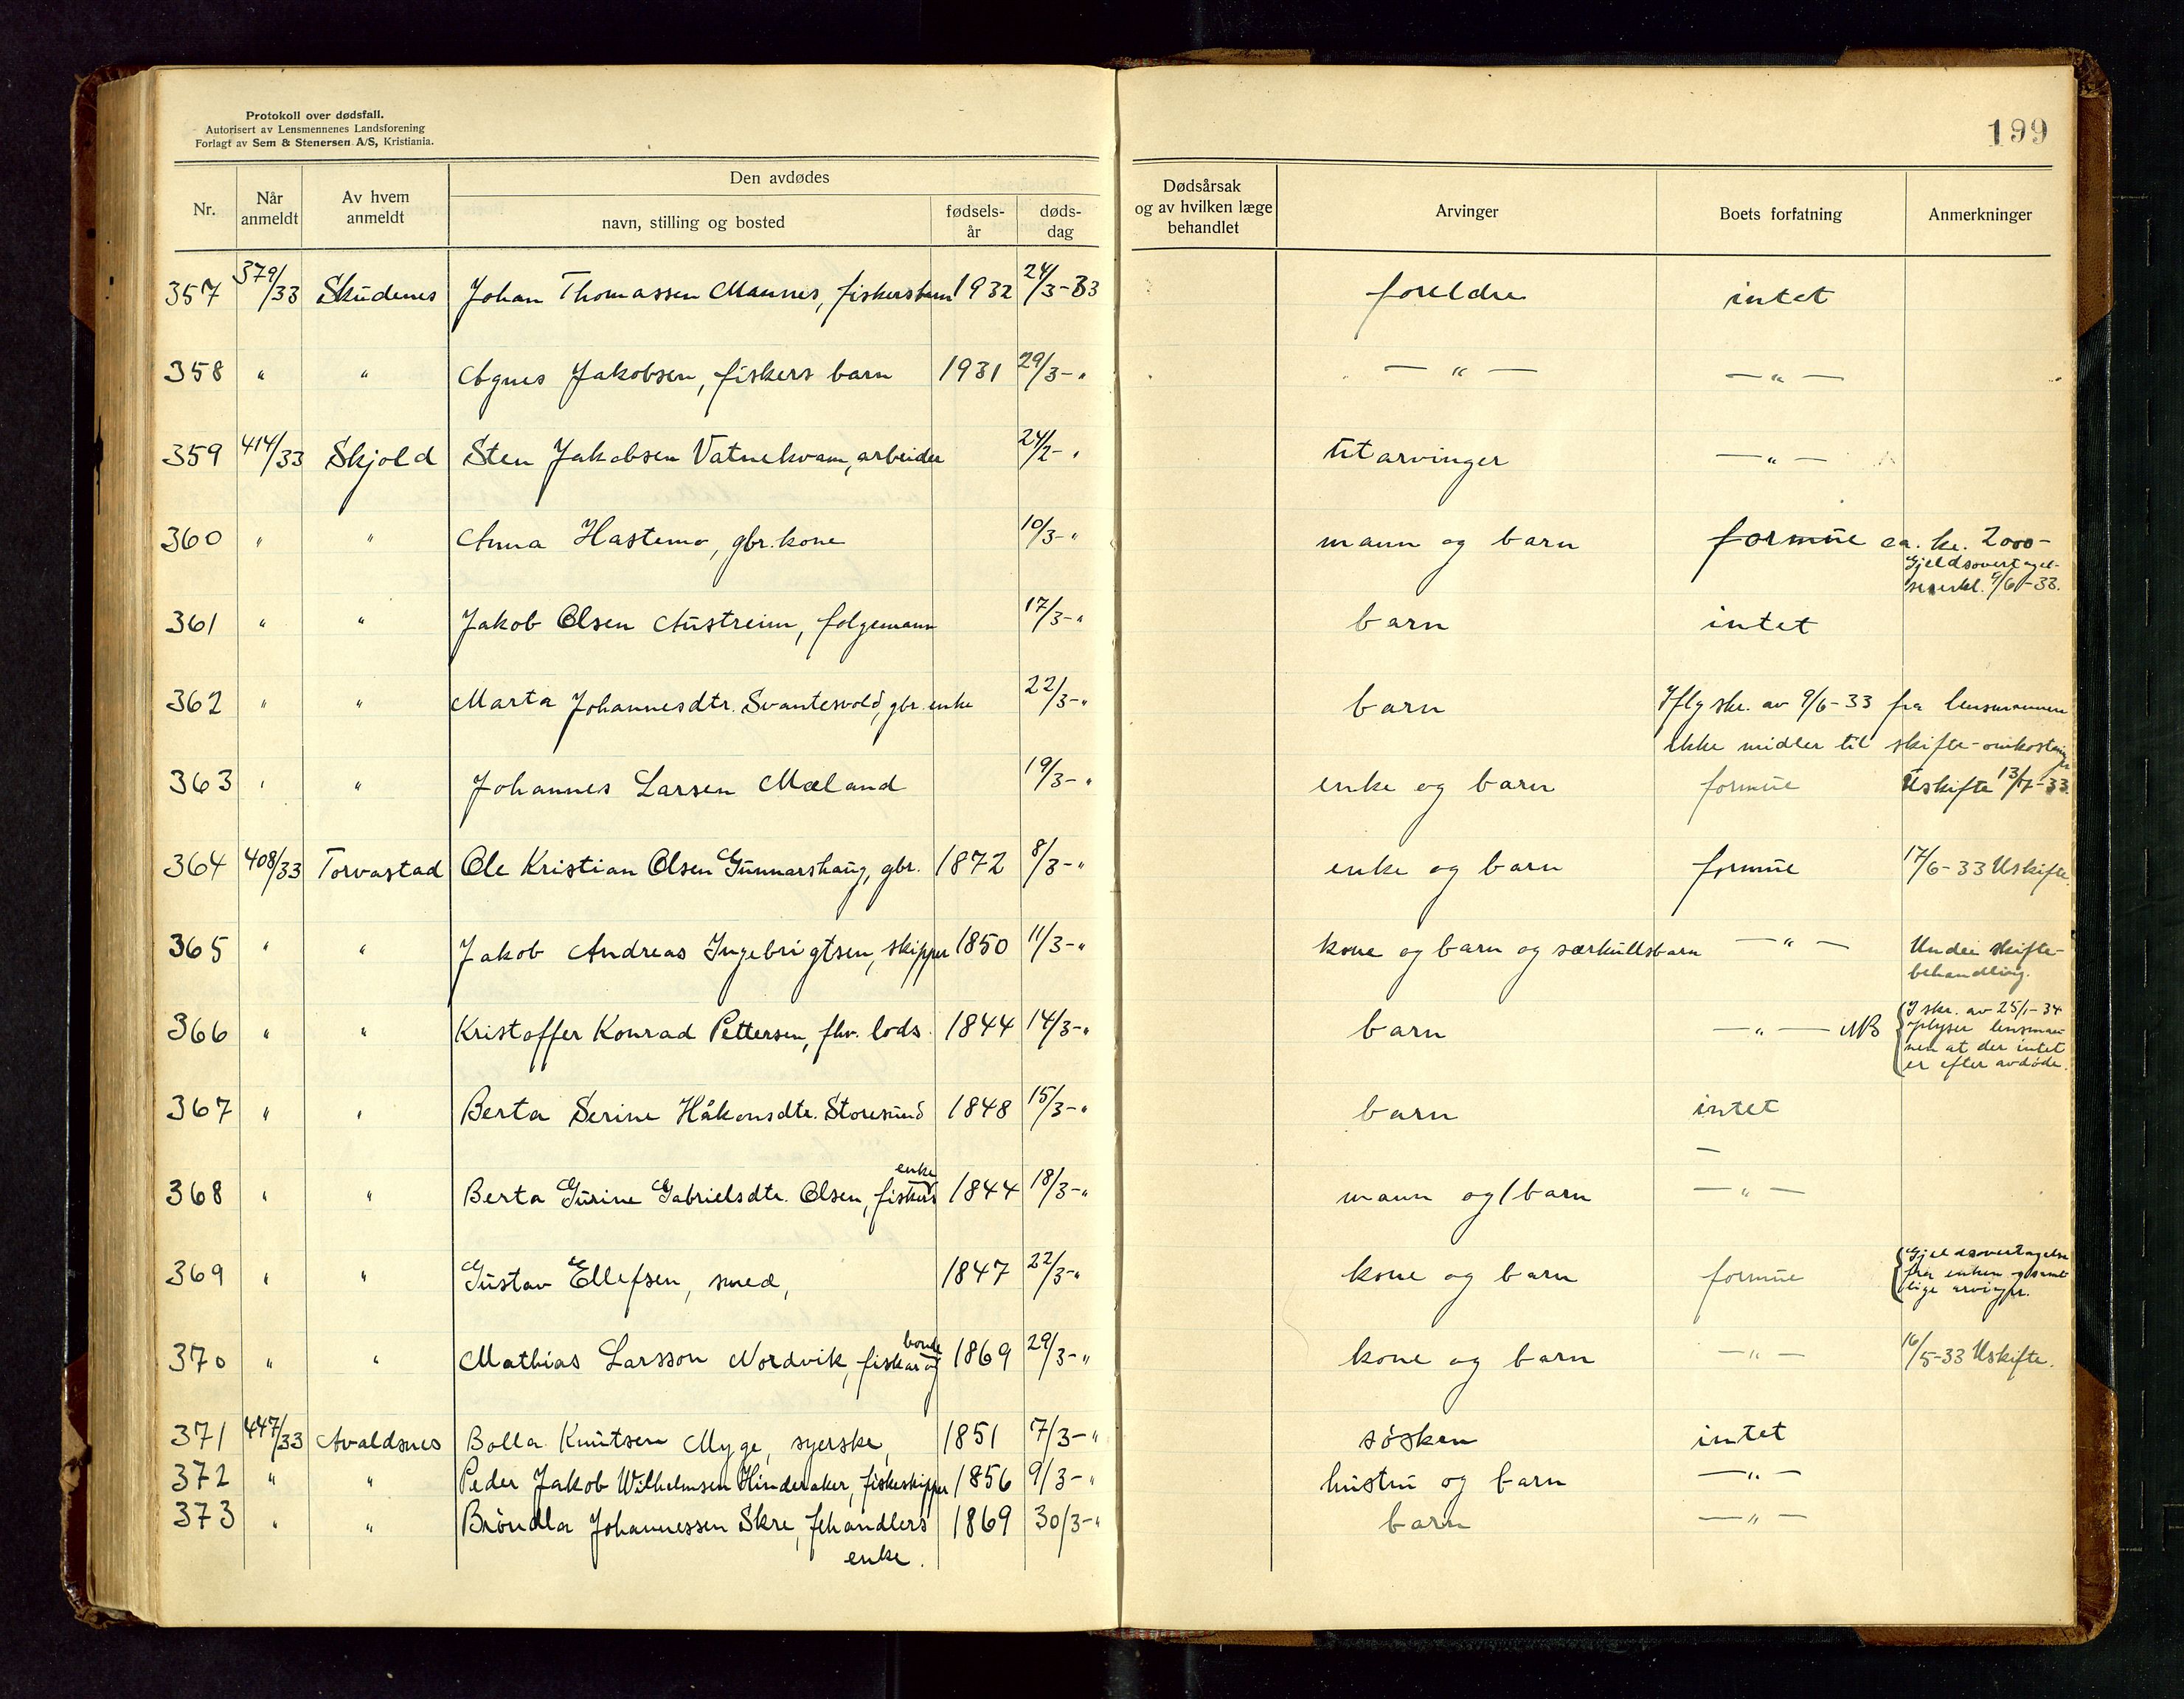 Protokoll over dødsfall.
Autorisert av Lensmennenes Landsforening
Forlagt av Sem & Stenersen A/S, Kristiania.
199
Nr. Når anmeldt Av hvem anmeldt Den avdødes navn, stilling og bosted fødsels-år døds-dag Dødsårsak og av hvilken læge behandlet Arvinger Boets forfatning Anmerkninger
357 379/33 Skudenes Johan Thomassen Mannes, fiskersbarn 1932 24/3-33 foreldre intet
358 " " Agnes Jakobsen, fiskers barn 1931 29/3-" —"— —"—
359 414/33 Skjold Sten Jakobsen Vatnekvam, arbeider 24/2-" utarvinger —"—
360 " " Anna Hastemo, gbr. kone 10/3-" mann og barn formue ca. kr. 2000-
Gjeldsovertagel-
seserkl. 9/6-33.
361 " " Jakob Olsen Austreim, følgemann 17/3-" barn intet
362 " " Marta Johannesdtr. Svantesvold, gbr. enke 22/3-" barn Iflg skr. av 9/6-33 fra lensmannen
ikke midler til skifte-omkostninger
363 " " Johannes Larsen Mæland 19/3-" enke og barn formue Uskifte 13/7-33.
364 408/33 Torvastad Ole Kristian Olsen Gunnarshaug, gbr. 1872 8/3-" enke og barn formue 17/6-33 Uskifte.
365 " " Jakob Andreas Ingebrigtsen, skipper 1850 11/3-" kone og barn og særkullsbarn —"— Under skifte-
behandling.
366 " " Kristoffer Konrad Pettersen, fhv. lods. 1844 14/3-" barn —"— NB I skr. av 25/1-34
oplyser lensman-
nen at der intet
er efter avdøde.
367 " " Berta Serine Håkonsdtr. Storesund 1848 15/3-" barn intet
—
368 " " Berta Gurine Gabrielsdtr. Olsen, fiskers enke 1844 18/3-" mann og 1 barn —"—
369 " " Gustav Ellefsen, smed, 1847 22/3-" kone og barn formue Gjeldsovertagelse
fra enken og samt
lige arvinger.
370 " " Mathias Larsson Nordvik, fiskar og bonde 1869 29/3-" kone og barn —"— 16/5-33 Uskifte.
371 447/33 Avaldsnes Bolla Knutsen Myge, syerske, 1851 7/3-" søsken intet
372 " " Peder Jakob Wilhelmsen Hinderaker, fiskeskipper 1856 9/3-" hustru og barn —"—
373 " " Brøndla Johannessen Skre, fehandlers 1869 30/3-" barn —"—
enke.